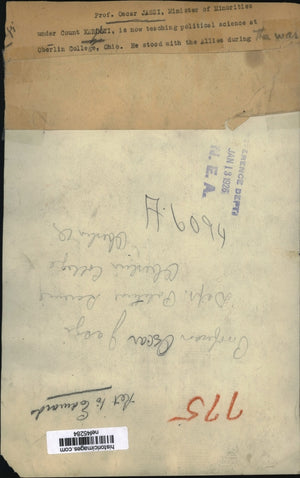 Prof. Oscar JASZI, Minister of Minorities
under Count KAROLYI, is now teaching political science at
Oberlin College, Ohio. He stood with the Allies during the war
REFERENCE DEPT.
JAN 13 1926
N. E. A.
Oberlin O.
Oberlin College
Dept. Political Science
Professor Oscar Jaszi
775
Ret to Edwards
historicimages.com
nef45284